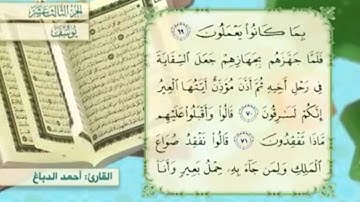 الجزء الثالث عشر
يوسف
بِمَا كَانُوا۟ يَعْمَلُونَ ٦٩
فَلَمَّا جَهَّزَهُم بِجَهَازِهِمْ جَعَلَ ٱلسِّقَايَةَ
فِى رَحْلِ أَخِيهِ ثُمَّ أَذَّنَ مُؤَذِّنٌ أَيَّتُهَا ٱلْعِيرُ
إِنَّكُمْ لَسَـٰرِقُونَ ٧٠ قَالُوا۟ وَأَقْبَلُوا۟ عَلَيْهِم
مَّاذَا تَفْقِدُونَ ٧١ قَالُوا۟ نَفْقِدُ صُوَاعَ
ٱلْمَلِكِ وَلِمَن جَآءَ بِهِۦ حِمْلُ بَعِيرٍ وَأَنَا۠
القارئ: أحمد الدباغ